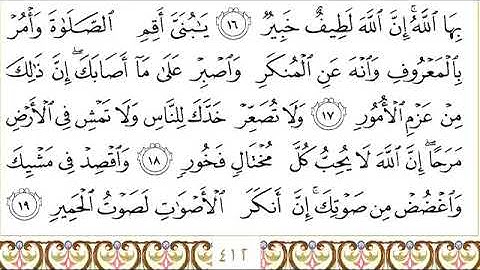 بِهَا ٱللَّهُۚ إِنَّ ٱللَّهَ لَطِيفٌ خَبِيرٌ ١٦ يَٰبُنَىَّ أَقِمِ ٱلصَّلَوٰةَ وَأۡمُرۡ
بِٱلۡمَعۡرُوفِ وَٱنۡهَ عَنِ ٱلۡمُنكَرِ وَٱصۡبِرۡ عَلَىٰ مَآ أَصَابَكَۖ إِنَّ ذَٰلِكَ
مِنۡ عَزۡمِ ٱلۡأُمُورِ ١٧ وَلَا تُصَعِّرۡ خَدَّكَ لِلنَّاسِ وَلَا تَمۡشِ فِى ٱلۡأَرۡضِ
مَرَحًاۖ إِنَّ ٱللَّهَ لَا يُحِبُّ كُلَّ مُخۡتَالٖ فَخُورٖ ١٨ وَٱقۡصِدۡ فِى مَشۡيِكَ
وَٱغۡضُضۡ مِن صَوۡتِكَۚ إِنَّ أَنكَرَ ٱلۡأَصۡوَٰتِ لَصَوۡتُ ٱلۡحَمِيرِ ١٩
٤١٢